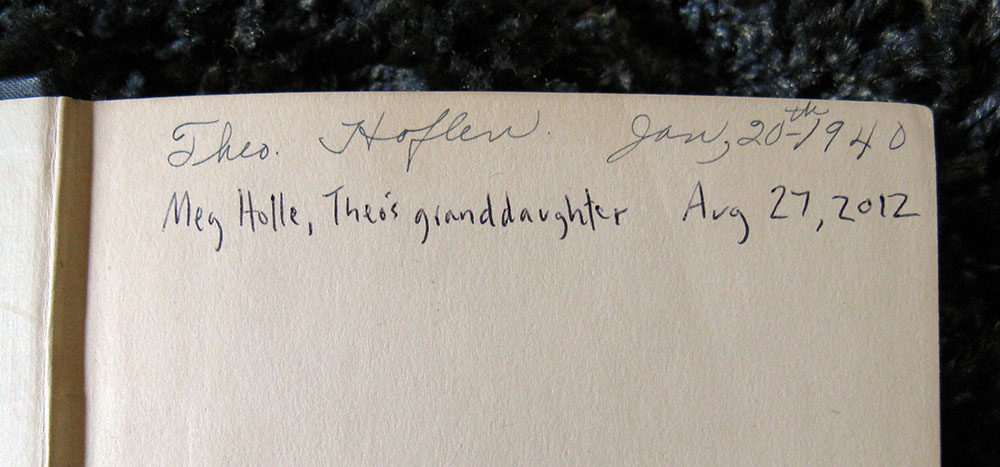 Theo. Hoflen. Jan, 20-th 1940
Meg Holle, Theo's granddaughter Aug 27, 2012